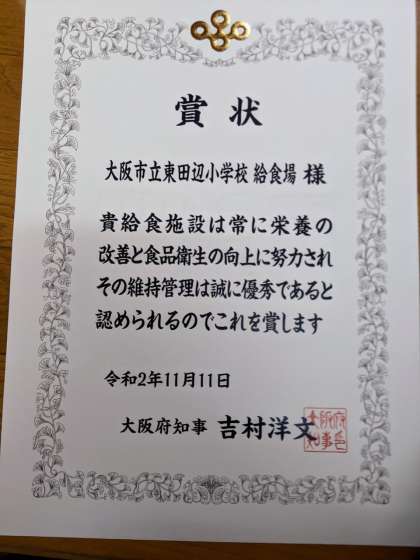 賞状
大阪市立東田辺小学校 給食場 様
貴給食施設は常に栄養の
改善と食品衛生の向上に努力され
その維持管理は誠に優秀であると
認められるのでこれを賞します
令和2年11月11日
大阪府知事 吉村洋文
大阪府
知事印